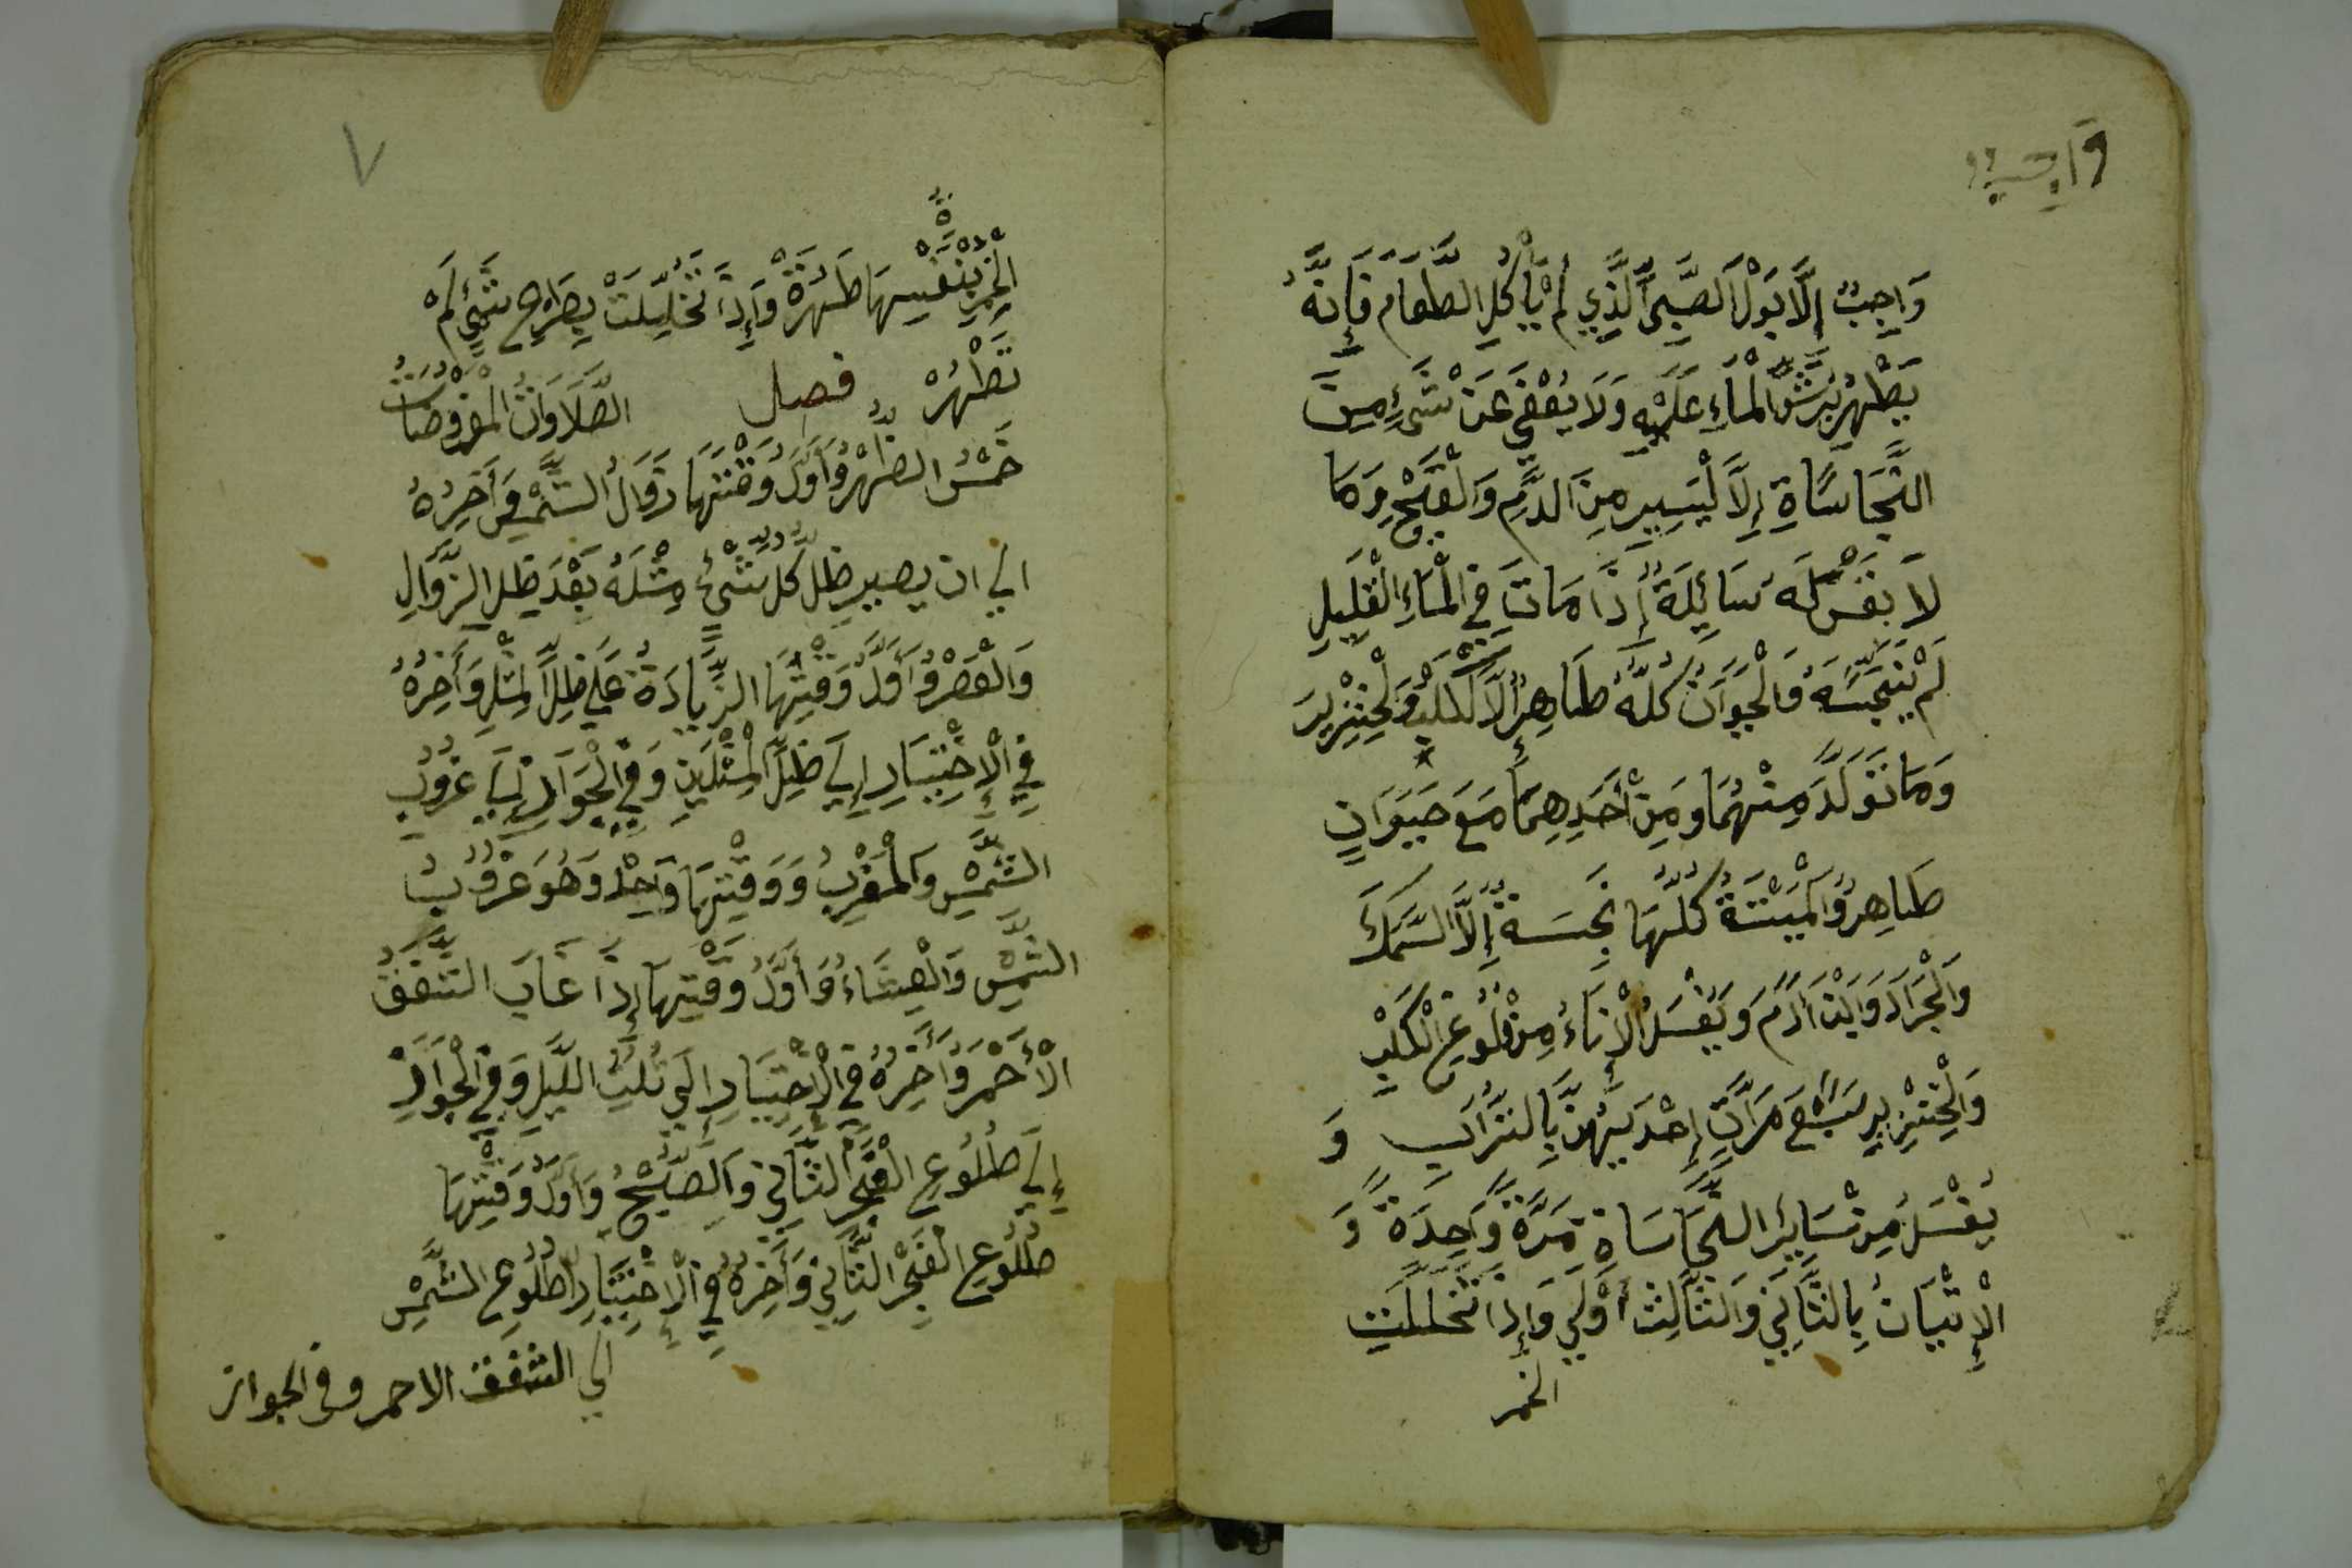 واجب
وَاجِبٌ إِلَّا بَوْلَ الصَّبِيِّ الَّذِي لَمْ يَأْكُلِ الطَّعَامَ فَإِنَّهُ
يَطْهُرُ بِرَشِّ الْمَاءِ عَلَيْهِ وَلَا يُعْفَى عَنْ شَيْءٍ مِنَ
النَّجَاسَاةِ إِلَّا لْيَسِيرِ مِنَ الدَّمِ وَالْقَيْحِ وَمَا
لَا نَفْسَ لَهُ سَائِلَةً إِذَا مَاتَ فِي الْمَاءِ الْقَلِيلِ
لَمْ يُنَجِّسَهُ وَالْحَيَوَانُ كُلُّهُ طَاهِرٌ إِلَّا الْكَلْبُ وَلْخِنْزِيرَ
وَمَا تَوَلَّدَ مِنْهُمَا وَمِنْ أَحَدِهِمَا مَعَ حَيَوَانٍ
طَاهِرٌ وَالْمَيْتَةُ كُلُّهَا نَجِسَةٌ إِلَّا السَّمَكَ
وَالْجَرَادَ وَابْنَ أَدَمَ وَيُغْسَلُ الْإِنَاءُ مِنْ وُلُوغِ الْكَلْبِ
وَالْخِنْزِيرِ سَبْعَ مَرَّاتٍ إِحْدَيهُنَّ بِالتُّرَابِ وَ
يُغْسَلُ مِنْ سَايِرِ النَّجَاسَاةِ مَرَّةً وَاحِدَةً وَ
الْإِتْيَانُ بِالثَّانِي وَالثَّالِثُ أَوْلَى وَإِذَا تَخَلَّلَتِ
الخمر
٧
الْخَمْرُ بِنَفْسِهَا طَهُرَةْ وَإِذَا تَخَلَّلَتْ بِطَرْحِ شَيْءٍ لَمْ
تَطْهُرْ فصل الصَّلَاوَاتُ الْمَفْرُوضَاتُ
خَمْسٌ الظُّهْرُ وَأَوَّلُ وَقْتِهَا زَوَالُ الشَّمْسِ وَأَخِرُهُ
الي ان يصير ظل كُلِّ شَيْءٍ مِثْلَهُ بَعْدَ ظِلِّ الزَّوَالِ
وَالْعَصْرُ وَأَوَّلُ وَقْتِهَا الزِّيَادَةُ عَلَى ظِلِّ الْمِثْلِ وَأَخِرُهُ
فِي الْإِخْتِيَارِ إِلَى ظِلِّ الْمِثْلَيْنِ وَفِي الْجَوَازِ إِلَى غُرُوبِ
الشَّمْسِ وَالْمَغْرِبُ وَوَقْتِهَا وَاحِدٌ وَهُوَ غُرُوبُ
الشَّمْسِ وَالْعِشَاءُ وَأَوَّلُ وَقْتِهَا إِذَا غَابَ الشَّفَقُ
الْأَحْمَرُ وَأَخِرُهُ فِي الْإِخْتِيَارِ إِلَى ثُلُثِ اللَّيْلِ وَفِي الْجَوَازِ
إِلَى طُلُوعِ الْفَجْرِ الثَّانِي وَالصُّبْحُ وَأَوَّلُ وَقْتِهَا
طُلُوعِ الْفَجْرِ الثَّانِي وَأَخِرُهُ فِي الْإِخْتِيَارِ طُلُوعِ الشَّمْسِ
الي الشفق الاحمر وفى الجواز